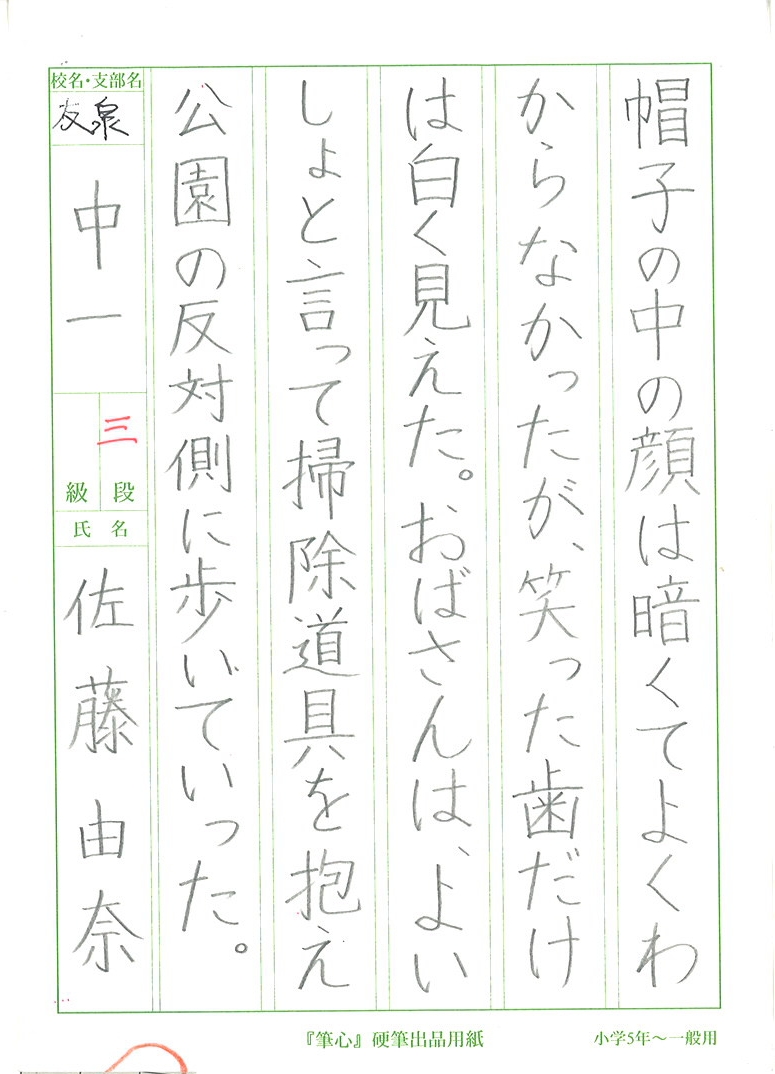 帽子の中の顔は暗くてよくわ
からなかったが、笑った歯だけ
は白く見えた。おばさんは、よい
しょと言って掃除道具を抱え
公園の反対側に歩いていった。
校名・支部名
友泉
中一
三
級 段
氏 名
佐藤由奈
『筆心』硬筆出品用紙
小学5年〜一般用